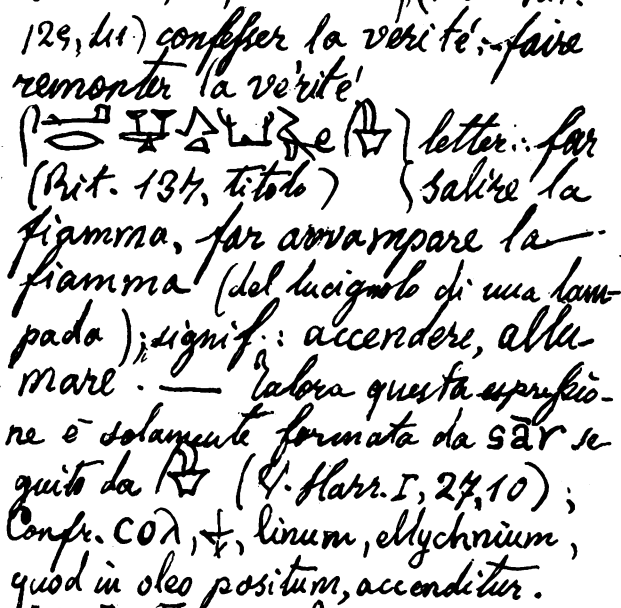 129, 411) confesser la vérité; faire
remonter la vérité
letter.: far
(Rit. 137, titolo) salire la
fiamma, far avvampare la
fiamma (del lucignolo di una lam-
pada); signif.: accendere, allu-
mare. — Talora questa espressio-
ne è solamente formata da sār se
guito da (P. Harr. I, 27, 10);
Confr. ⲥⲟⲗ, ϯ, linum, ellychnium,
quod in oleo positum, accenditur.